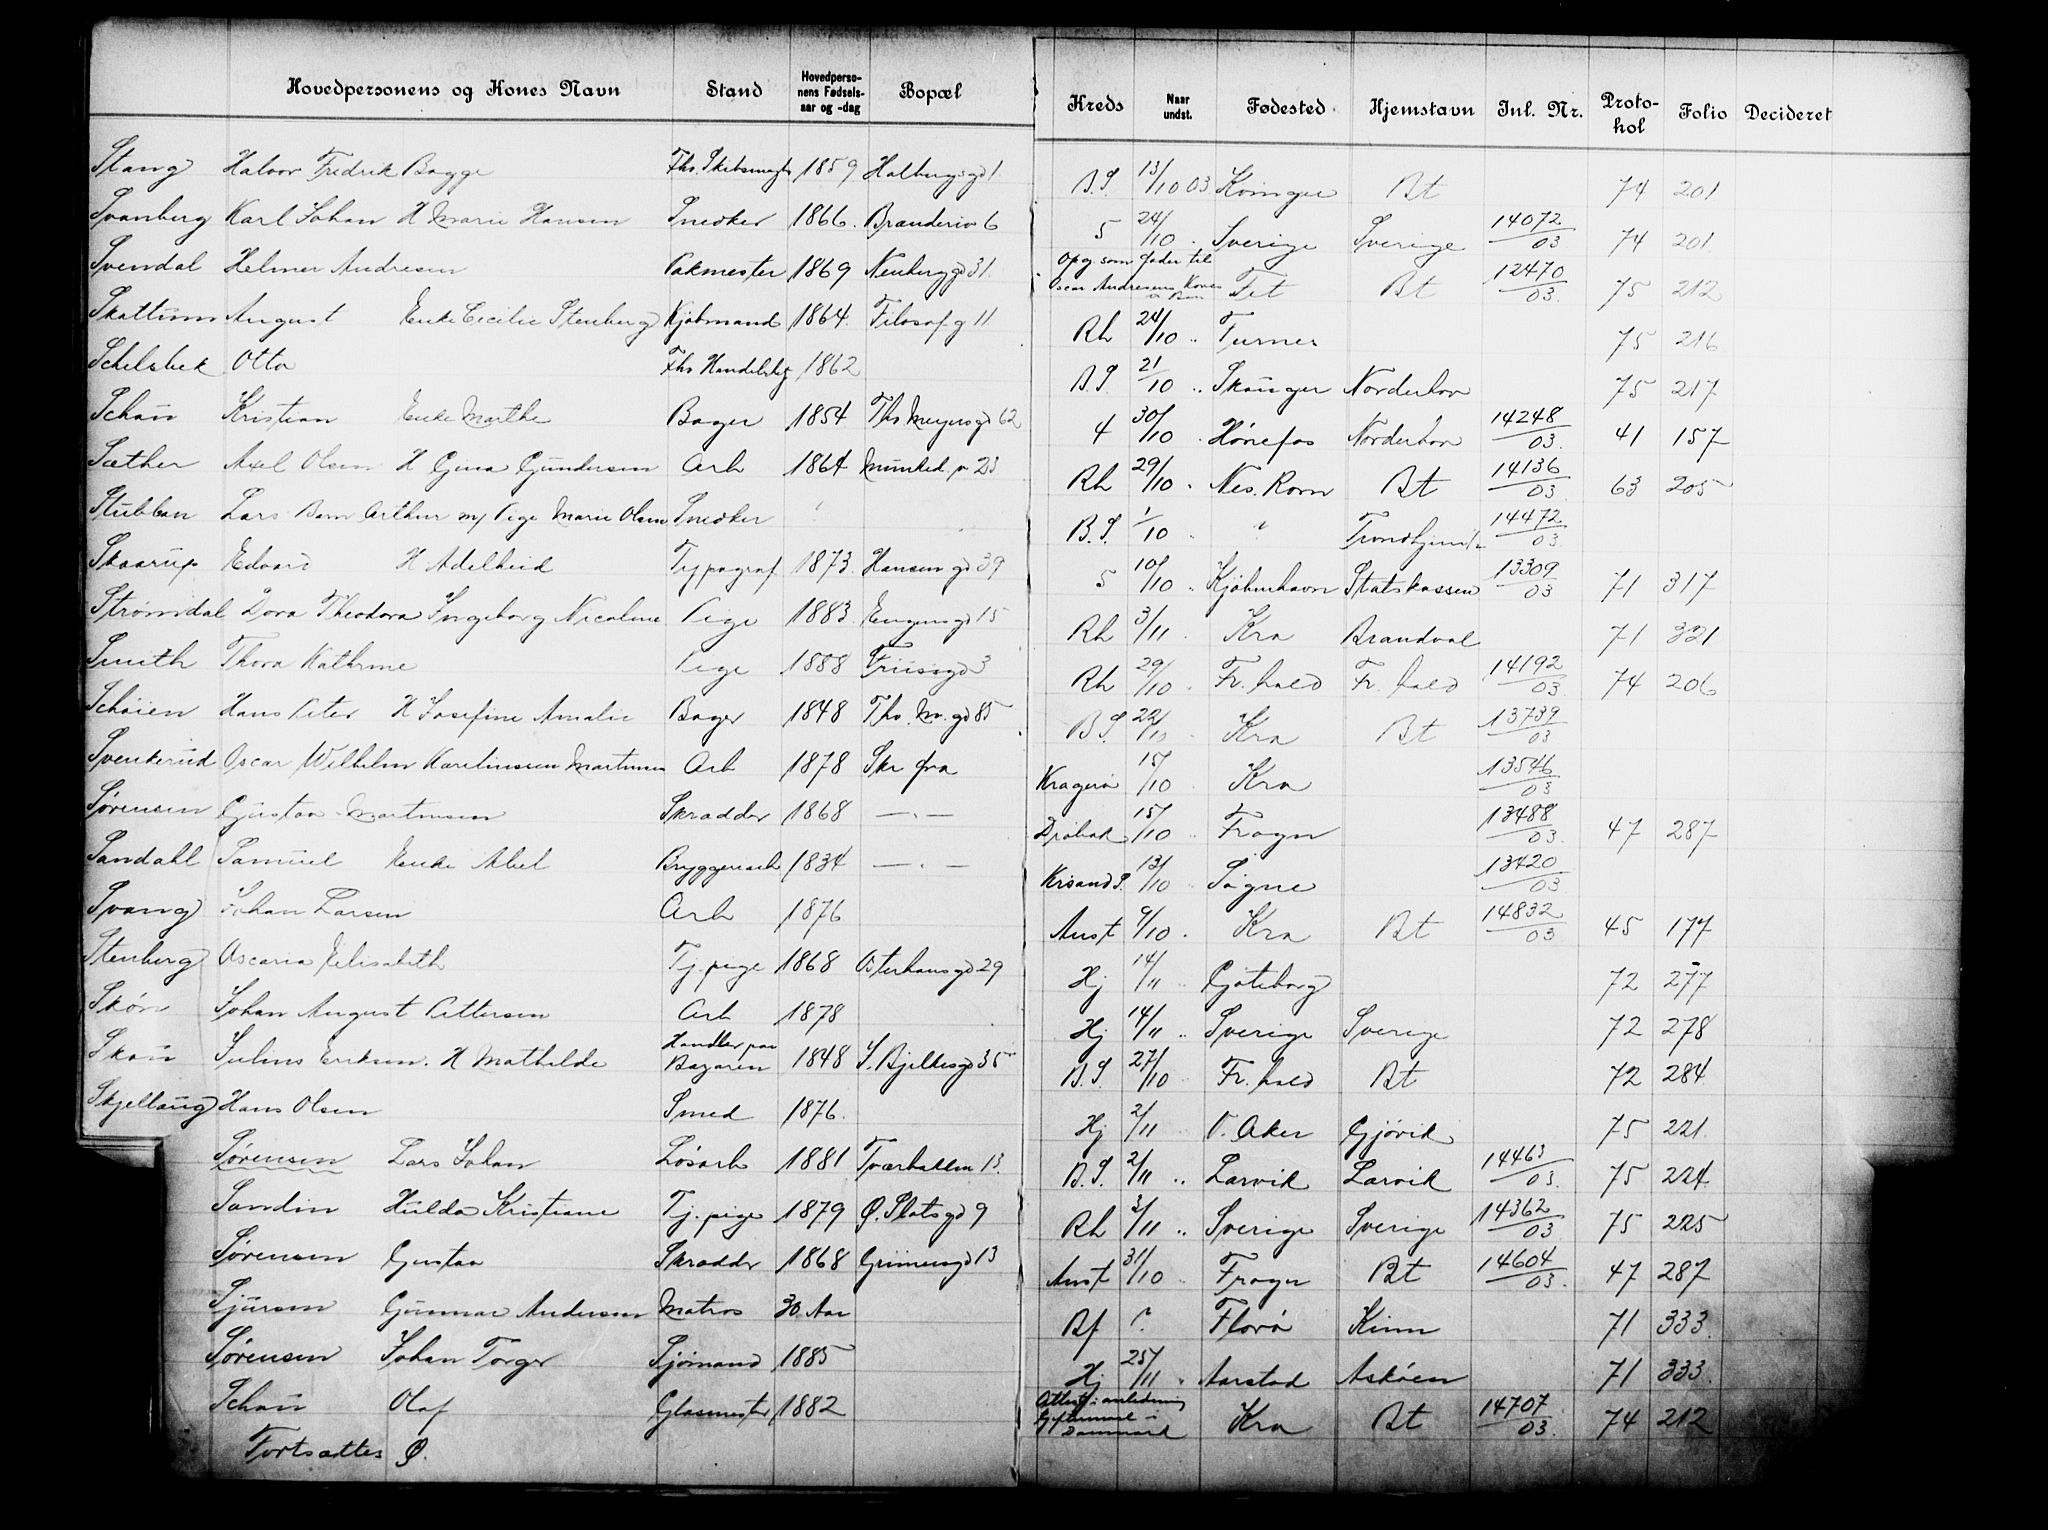 Hovedpersonens og Kones Navn Stand Hovedperso-nens Fødsels-aar og -dag Bopæl Kreds Naar undst. Fødested Hjemstavn Inl. Nr. Proto-kol Folio Decideret
Stang Halvor Fredrik Bagge Fhv. 1859 Holbergsgd 1 B.S. 13/10 03 Bt 74 201
Svanberg Karl Johan H Marie Hansen Snedker 1866. 6 5 24/10 Sverige Sverige 14072/03 74 201
Svendal Helmer Andresen Pakmester 1869 Neuberggd 31. Opg. som fader til Oscar Andresens Kone o Barn Fet Bt 12470/03. 75 212
Skattum August Enke Cecilie Stenberg Kjøbmand 1864. Filosof. g 11 Rh 24/10 " Furnes 75 216
Schelsbek Otto Fhv Handelsbg 1862 B.S. 21/10 " Norderhov 75 217
Schau Kristian Enke Marthe Bager 1854 Ths. Meyersgd 62 4 30/10 Hønefos Norderhov 14248/03. 41 157
Sæther Axel Olsen H Gina Gundersen Arb 1864 Munked. v 23 Rh 29/10 Nes. Rom Bt 14136/03 63 205
Stubban Lars Barn Arthur m/ Pige Marie Olsen Snedker B.S. 1/10 " Trondhjem 14472/03
Skaarup Edvard H Adelheid Typograf 1873. Hansens gd 39 5 10/10 " Kjøbenhavn Statskassen 13309/03 71 317
Strømdal Dora Theodora Ingeborg Nicoline Pige 1883. Eugensgd 15 Rh 3/11 Kra Brandval 71 321
Smith Thora Kathrine Pige 1888 Friisgd 3 Rh 29/10 Fr. hald Fr. hald 14192/03. 74 206
Schøien Hans Peter H Josefine Amalie Bager 1848 Ths. M. gd 85 B.S. 22/10 Kra Bt 13739/03
Svenkerud Oscar Wilhelm Martinsen Arb 1878 Skr fra Kragerø 15/10 Kra 13546/03
Sørensen Gustav Martinsen Skrædder 1868 — " — Drøbak 15/10 " Frogn 13488/03. 47 287
Sandahl Samuel Enke Abel Bryggeriarb 1834 — " — Krsand S. 13/10 " Søgne 13420/03
Svang Johan Larsen Arb 1876 Aust 9/10 Kra Bt 14832/03 45 177
Stenberg Oscaria Elisabeth Tj. pige 1868 Osterhausgd 29 Hj 14/11 Gøteborg 72 277
Skön Johan August Pettersen Arb 1878 Hj 14/11 " Sverige Sverige 72 278
Skau Julius Eriksen. H Mathilde Handler paa Bazaren 1848 J. Bjelkesgd 35 B.S. 27/10 Fr. hald Bt 72 284
Skjellaug Hans Olsen Smed 1876. Hj 2/11 V. Aker Gjøvik 75 221.
Sørensen Lars Johan Løsarb 1881 Tværbakken 13. B.S. 2/11 " Larvik Larvik 14463/03. 75 224
Sandin Hulda Kristiane Tj. pige 1879 Ø. Slotsgd 9 Rh 3/11 " Sverige Sverige 14362/03 75 225
Sørensen Gustav Skrædder 1868 Grünersgd 13 Aust 31/10 Frogn Bt 14604/03. 47 287
Sjursen Gunnar Andersen Matros 30 Aar Bf ? Florø Kinn 71 333.
Sørensen Johan Torger Sjømand 1885 Hj 25/11 " Aarstad Askøen 71 333.
Schau Olaf Glasmester 1882 Attest i anledning Giftermaal i Danmark Kra Bt 14707/03. 74 212
Fortsættes Ø.